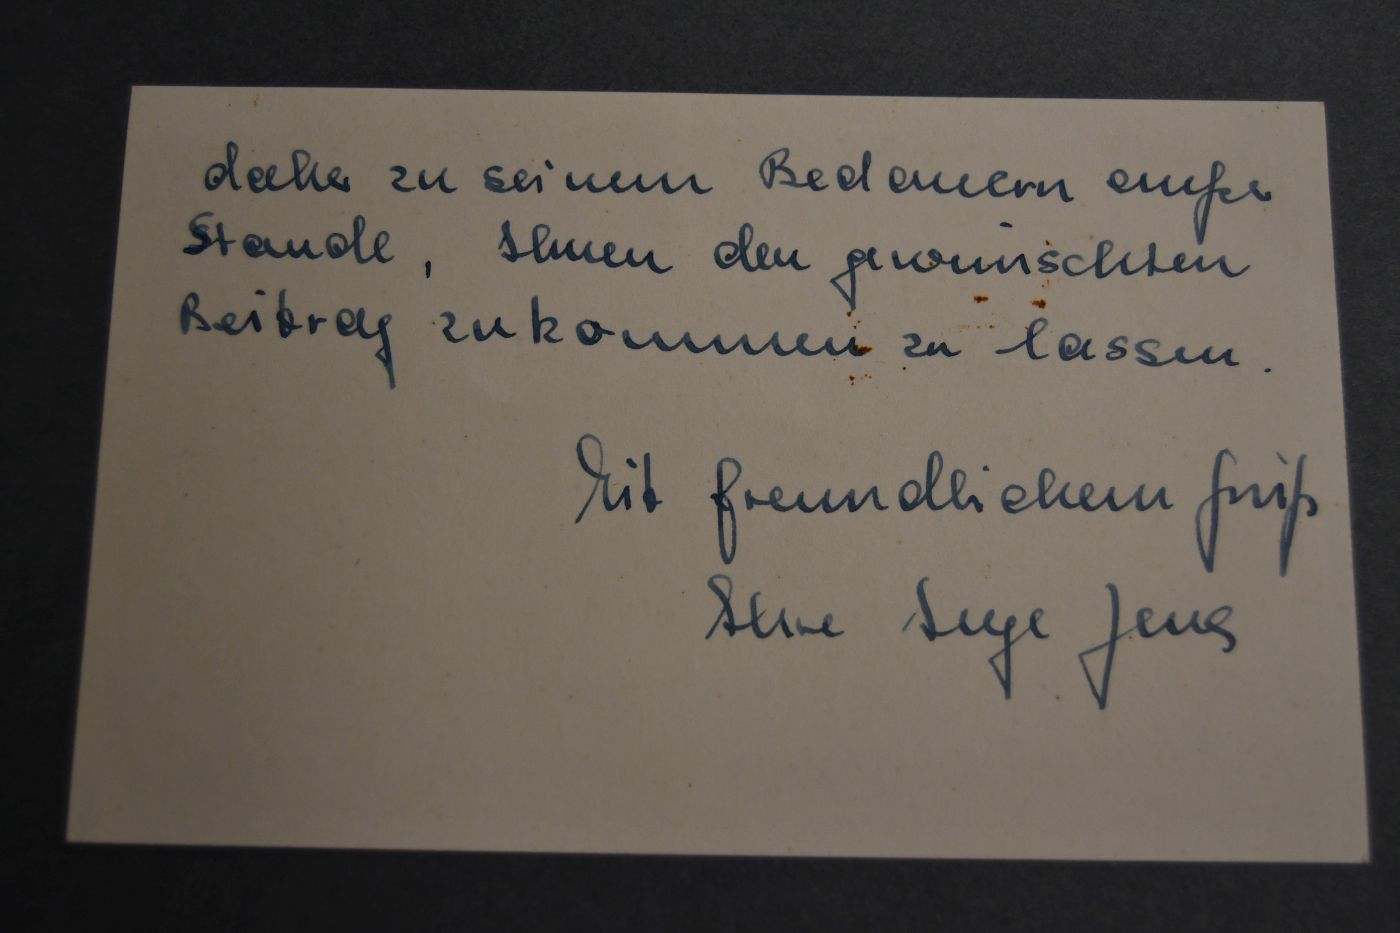 daher zu seinem Bedauern außer
Stande, Ihnen den gewünschten
Beitrag zukommen zu lassen.
Mit freundlichem Gruß
Ihre Inge Jens